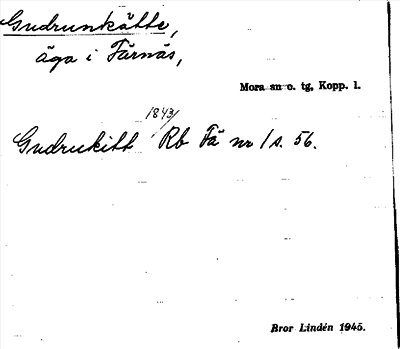 Gudrunkätte,
äga i Färnäs,
Mora sn o. tg, Kopp. l.
1843/
Gudrukitt Rb Fä nr 1 s. 56.
Bror Lindén 1945.